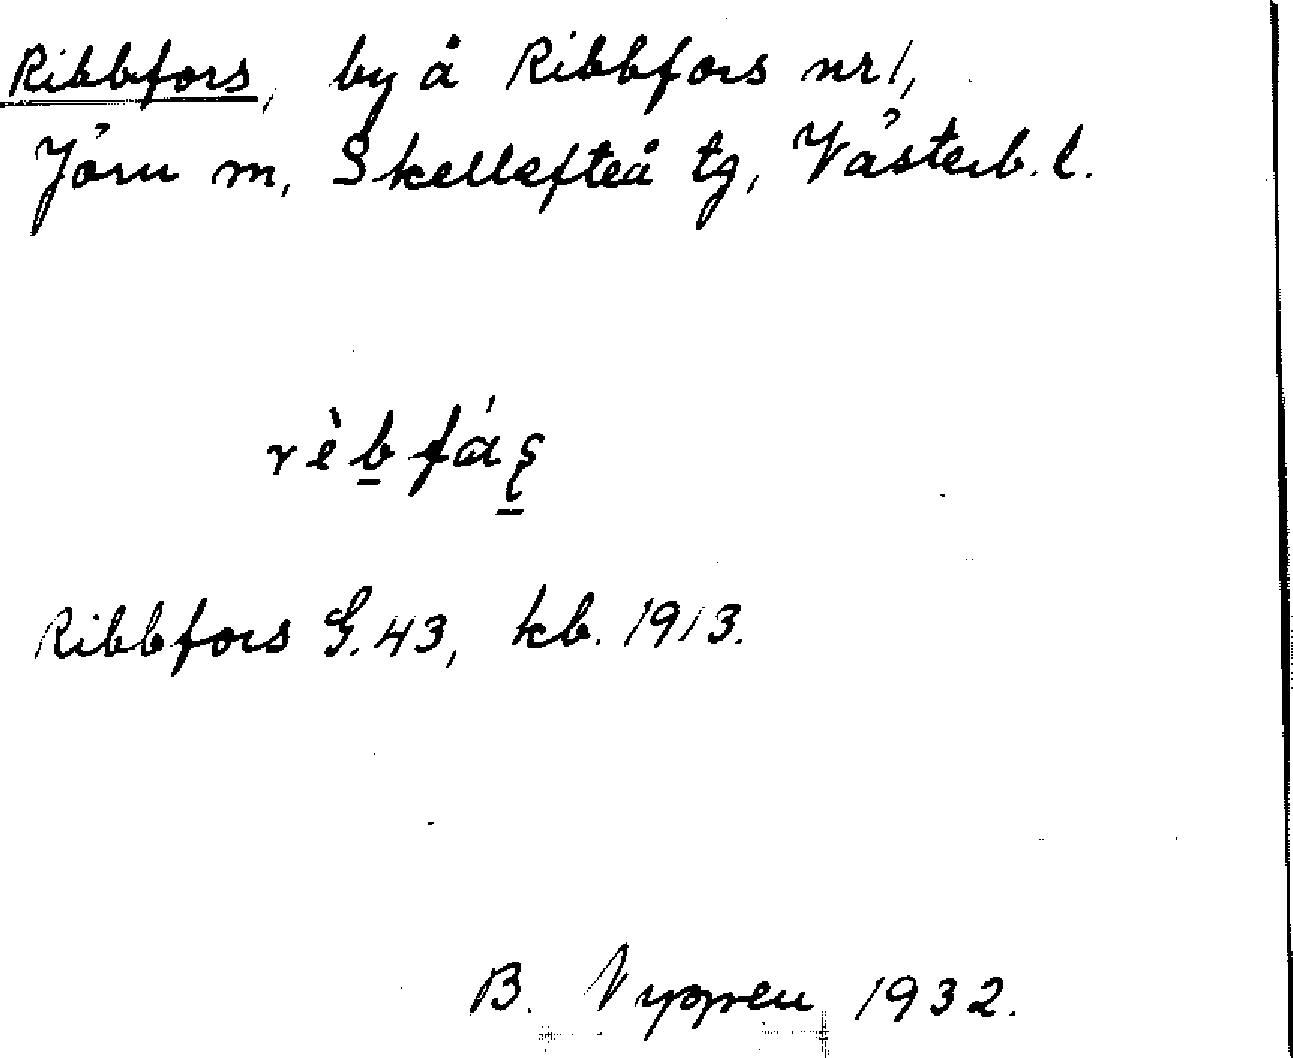 Ribbfors, by å Ribbfors nr 1,
Jörn sn, Skellefteå tg, Västerb. l.
rèb̲fás̲
Ribbfors G. 43, kb. 1913.
B. 1932.